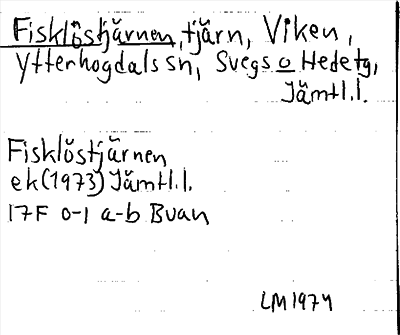 Fisklöstjärnen, tjärn, Viken,
Ytterhogdals sn, Svegs o Hedetg,
Jämtl.l.
Fisklöstjärnen
ek (1973) Jämtl.l.
17F 0-1 a-b Buan
LM 1974